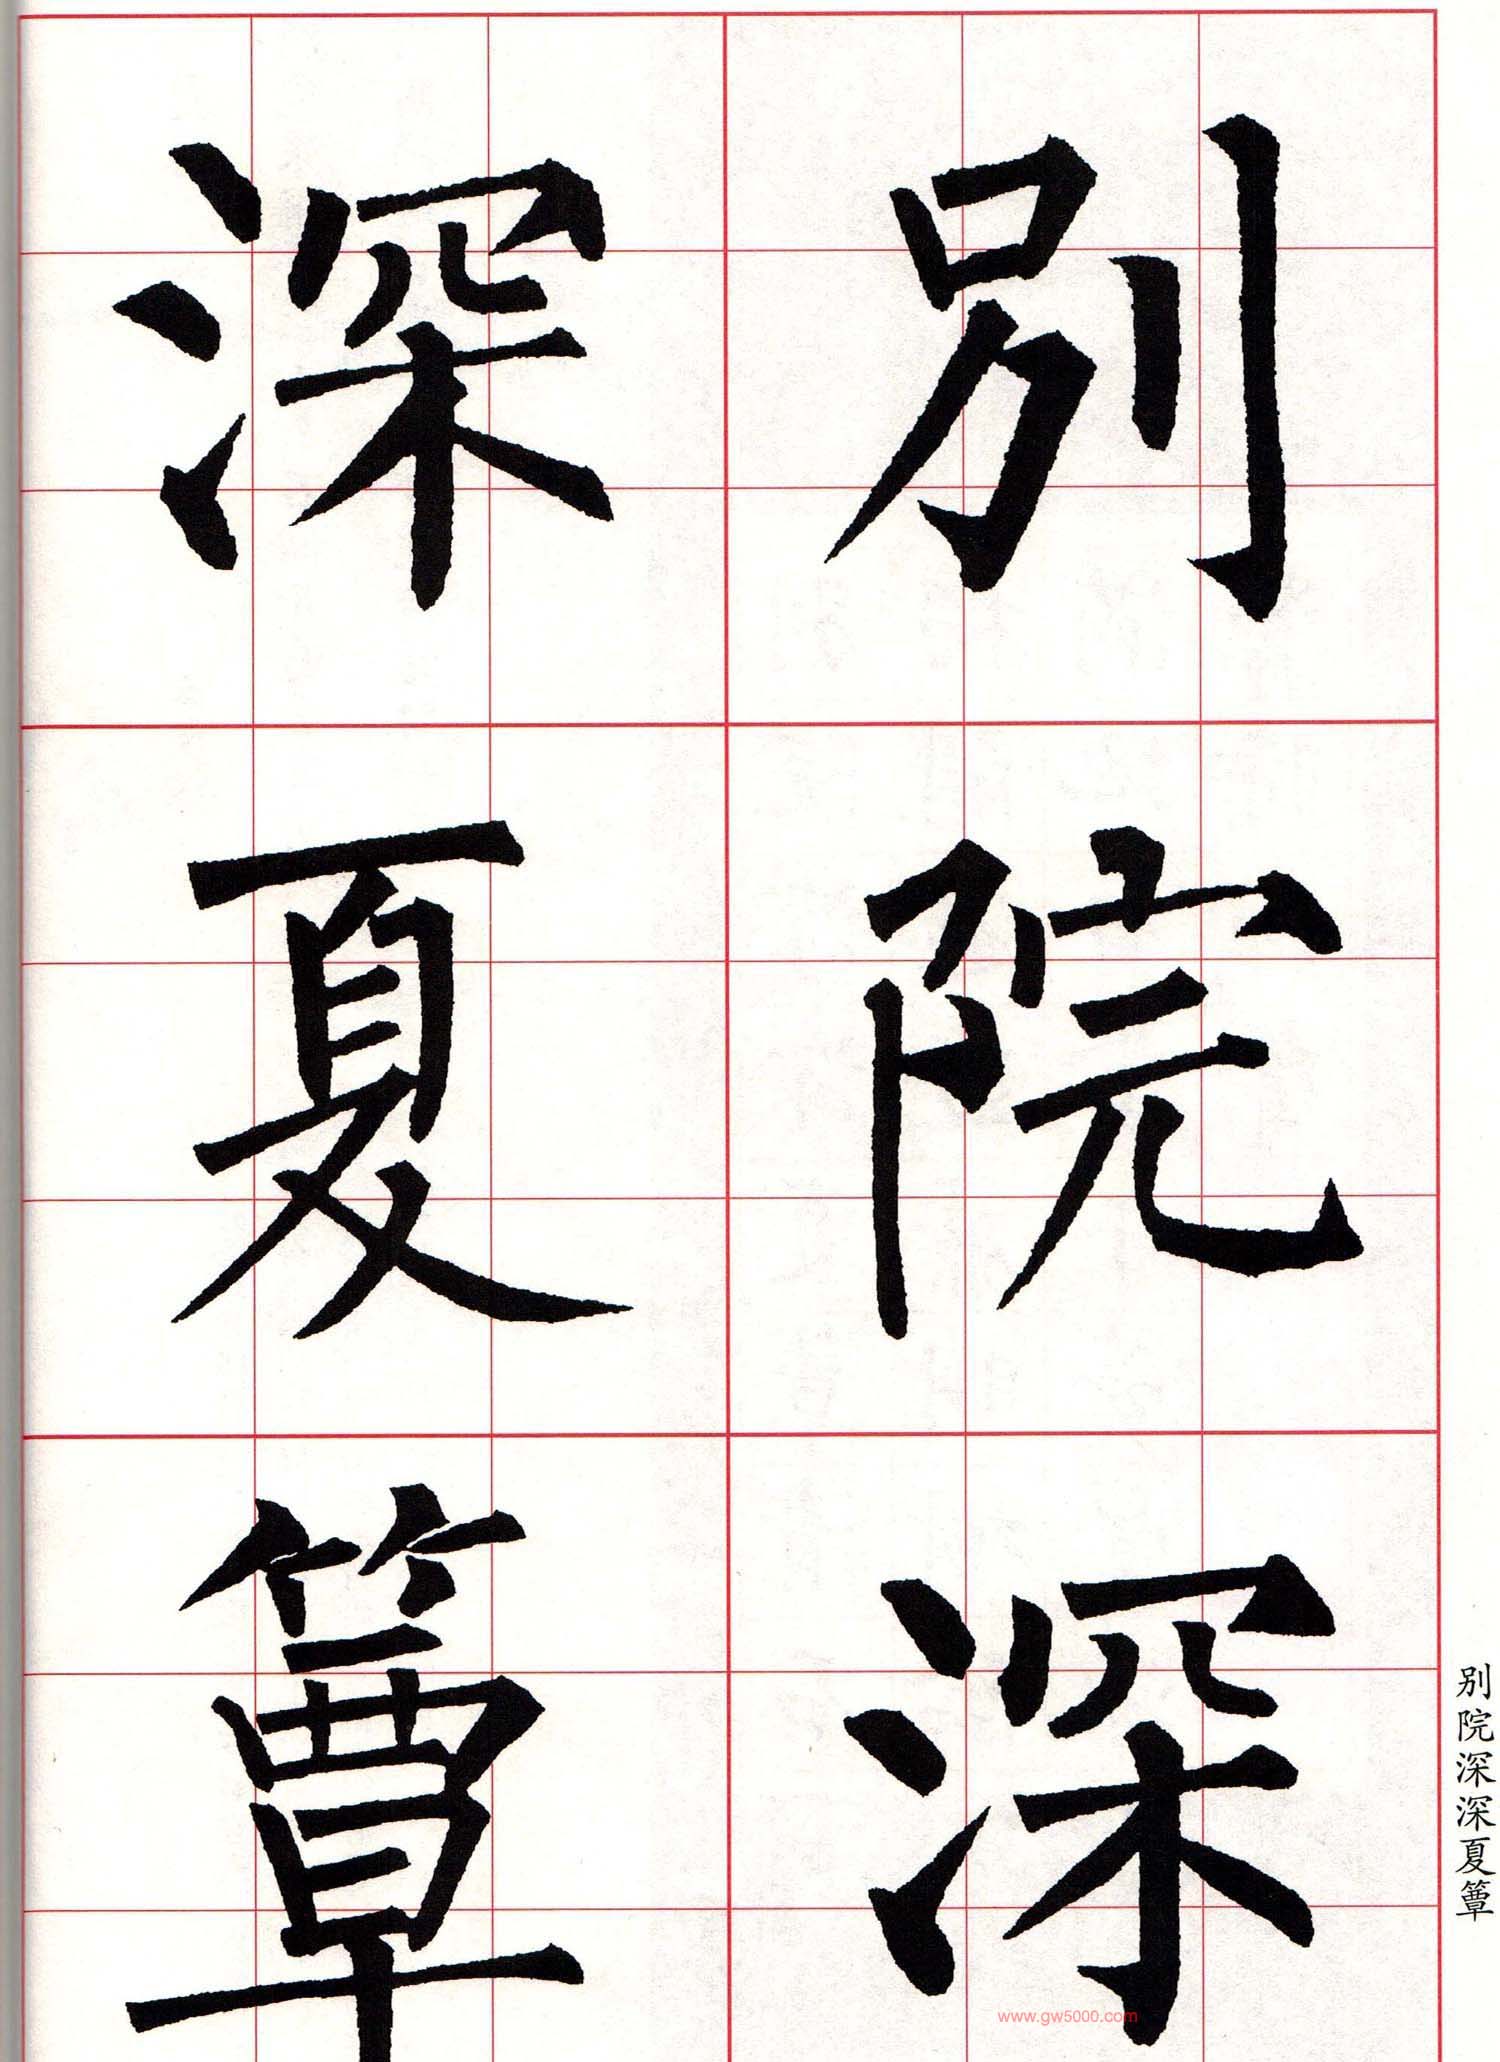 別院深
深夏簟
别院深深夏簟
www.gw5000.com